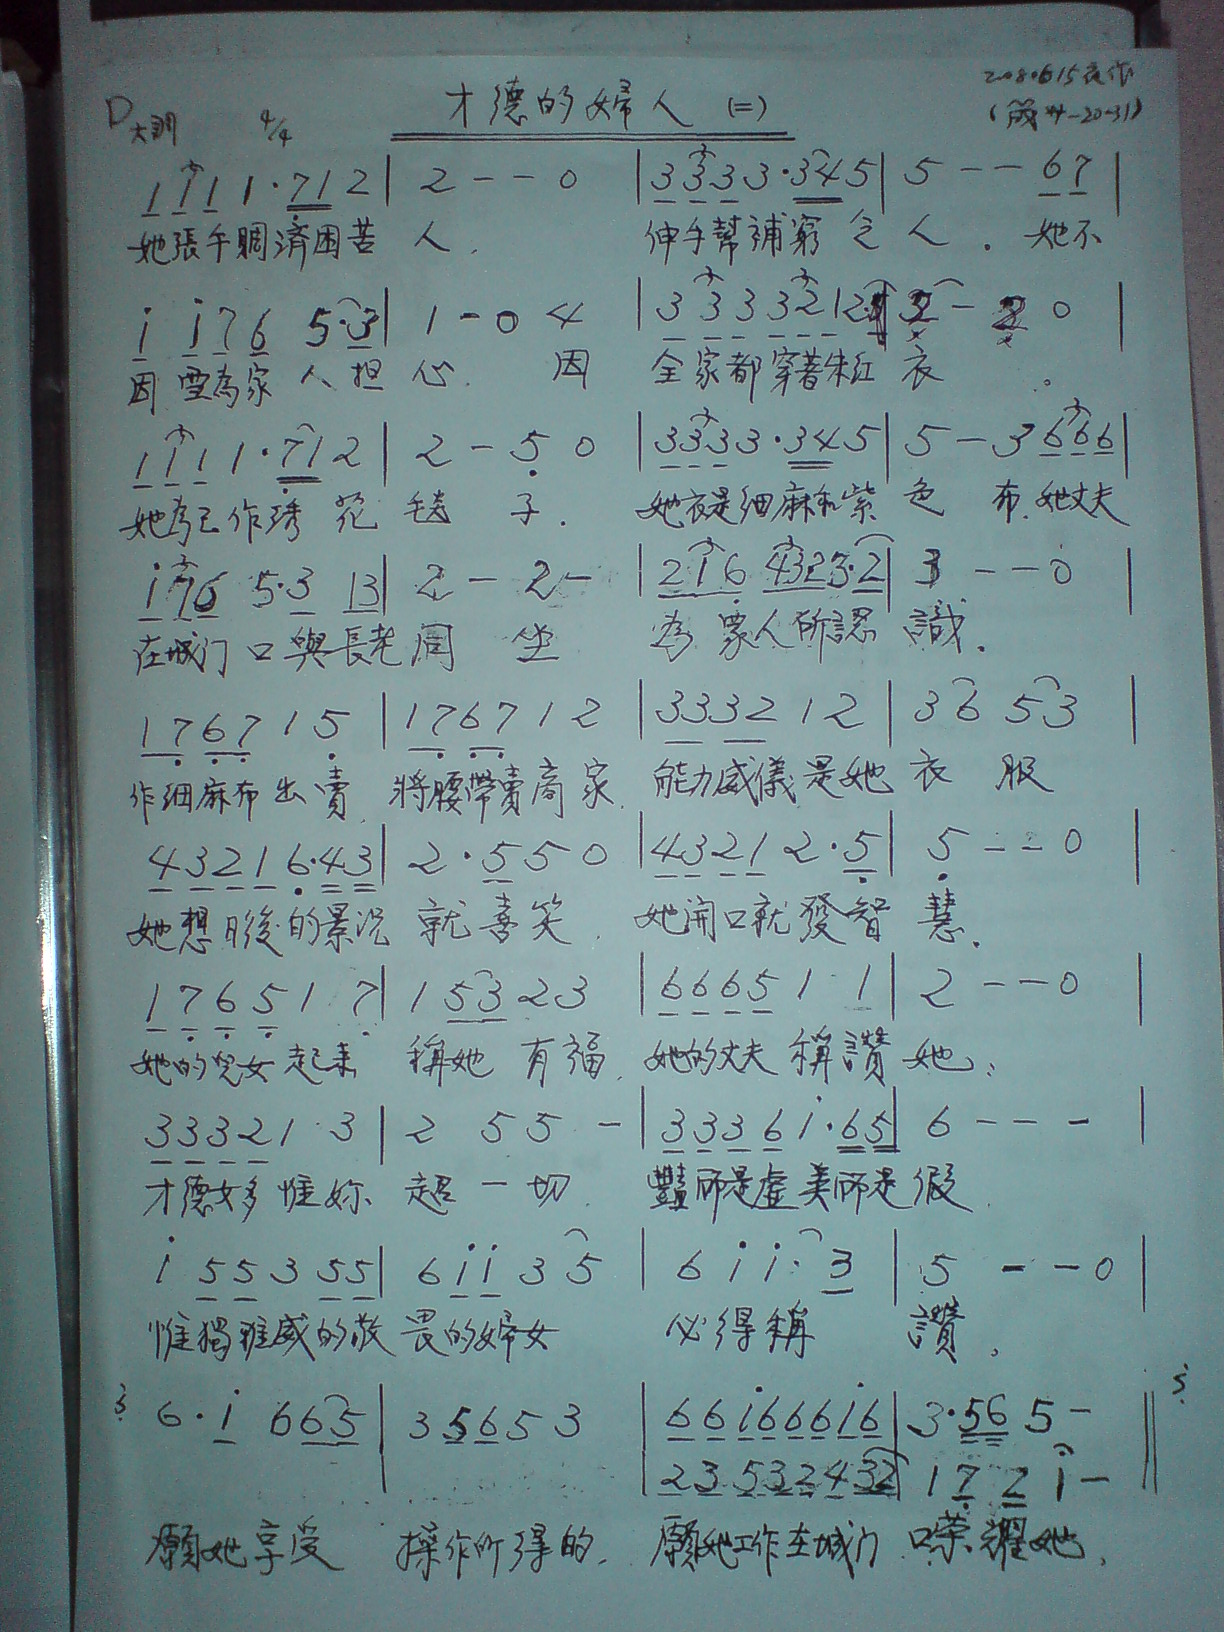 才德的婦人 (二)
D大調 4/4
1 1 1 1·7 1 2 | 2 - - 0 | 3 3 3 3·3 4 5 | 5 - - 6 7 |
她張手賙濟困苦人. 伸手幫補窮乏人. 她不
i i 7 6 5·3 | 1 - 0 4 | 3 3 3 3 2 1 2
因雪為家人担心. 因全家都穿著朱紅衣.
1 1 1 1·7 1 2 | 2 - 5 0 | 3 3 3 3·3 4 5 | 5 - 3 6 6 6 |
她為己作琇花毯子. 她衣是細麻和紫色布.她丈夫
i 7 6 5·3 1 3 | 2 - 2 - | 2 1 6 4 3 2 3·2 | 3 - - 0 |
在城门口與長老同坐 為眾人所認識.
1 7 6 7 1 5 | 1 7 6 7 1 2 | 3 3 3 2 1 2 | 3 6 5 3 |
作細麻布出賣, 將腰帶賣商家, 能力威儀是她衣服
4 3 2 1 6·4 3 | 2·5 5 0 | 4 3 2 1 2·5 | 5 - - 0 |
她想日後的景況就喜笑, 她開口就發智慧.
1 7 6 5 1 7 | 1 5 3 2 3 | 6 6 6 5 1 1 | 2 - - 0 |
她的兒女起來稱她有福, 她的丈夫稱讚她;
3 3 3 2 1 3 | 2 5 5 - | 3 3 3 6 i·6 5 | 6 - - - |
才德女多惟妳超一切, 豔丽是虛美丽是假
i 5 5 3 5 5 | 6 i i 3 5 | 6 i i·3 | 5 - - 0 |
惟獨雅威的敬畏的婦女必得稱讚.
6·i 6 6 5 | 3 5 6 5 3 | 6 6 i 6 6 6 i 6 | 3·5 6 5 - ||
2 3 5 3 2 4 3 2 | 1 7 2 i - ||
願她享受操作所得的, 願她工作在城门口荣耀她,